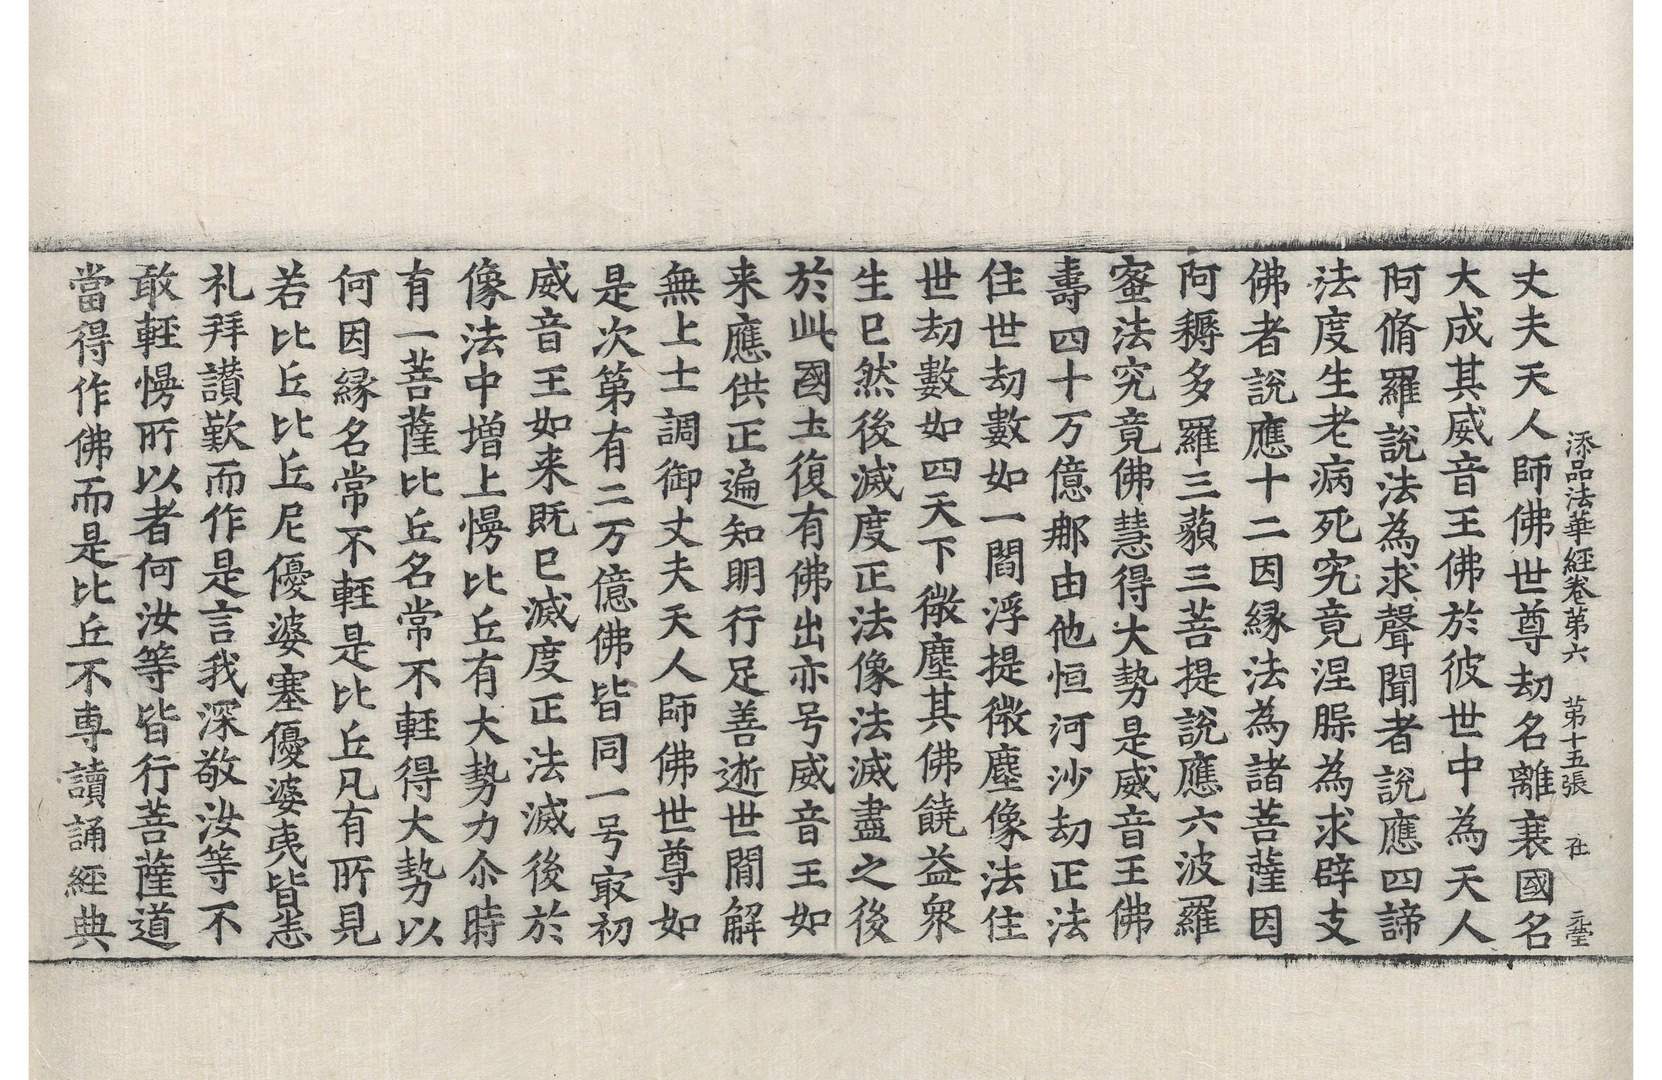 添品法華經卷第六　第十五張　社
丈夫天人師佛世尊劫名離衰國名
大成其威音王佛於彼世中為天人
阿脩羅說法為求聲聞者說應四諦
法度生老病死究竟涅槃為求辟支
佛者說應十二因緣法為諸菩薩因
阿耨多羅三藐三菩提說應六波羅
蜜法究竟佛慧得大勢是威音王佛
壽四十万億那由他恒河沙劫正法
住世劫數如一閻浮提微塵像法住
世劫數如四天下微塵其佛饒益眾
生已然後滅度正法像法滅盡之後
於此國土復有佛出亦号威音王如
来應供正遍知明行足善逝世間解
無上士調御丈夫天人師佛世尊如
是次第有二万億佛皆同一号㝡初
威音王如来既已滅度正法滅後於
像法中增上慢比丘有大勢力尒時
有一菩薩比丘名常不輕得大勢以
何因緣名常不輕是比丘凡有所見
若比丘比丘尼優婆塞優婆夷皆悉
礼拜讚歎而作是言我深敬汝等不
敢輕慢所以者何汝等皆行菩薩道
當得作佛而是比丘不專讀誦經典